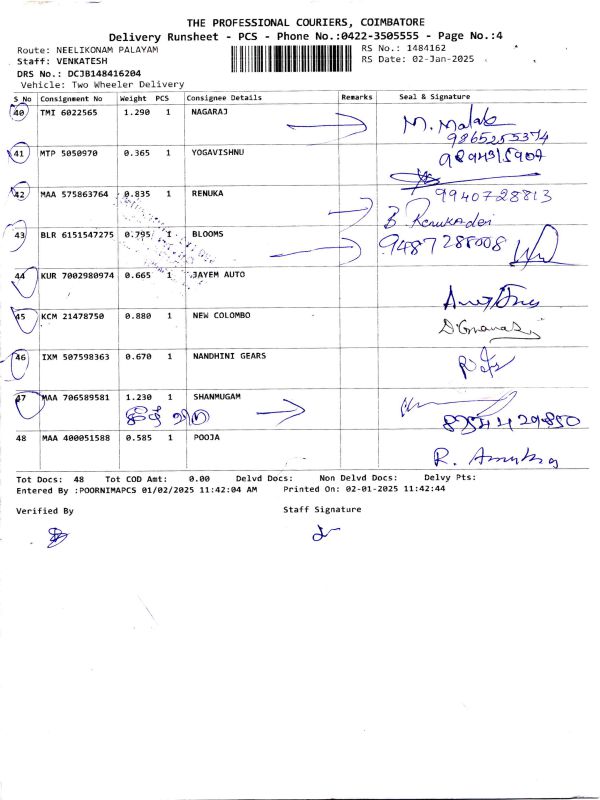 THE PROFESSIONAL COURIERS, COIMBATORE
Delivery Runsheet - PCS - Phone No.:0422-3505555 - Page No.:4
Route: NEELIKONAM PALAYAM
RS No.: 1484162
Staff: VENKATESH
RS Date: 02-Jan-2025
DRS No.: DCJB148416204
Vehicle: Two Wheeler Delivery
S No Consignment No Weight PCS Consignee Details Remarks Seal & Signature
40 TMI 6022565 1.290 1 NAGARAJ
9865255374
41 MTP 5050970 0.365 1 YOGAVISHNU
42 MAA 575863764 0.835 1 RENUKA 9940728813
B. Renukadei
43 BLR 6151547275 0.795 1 BLOOMS 9487288008
44 KUR 7002980974 0.665 1 JAYEM AUTO
45 KCM 21478750 0.880 1 NEW COLOMBO
46 IXM 507598363 0.670 1 NANDHINI GEARS
47 MAA 706589581 1.230 1 SHANMUGAM
48 MAA 400051588 0.585 1 POOJA
Tot Docs: 48 Tot COD Amt: 0.00 Delvd Docs: Non Delvd Docs: Delvy Pts:
Entered By :POORNIMAPCS 01/02/2025 11:42:04 AM Printed On: 02-01-2025 11:42:44
Verified By Staff Signature